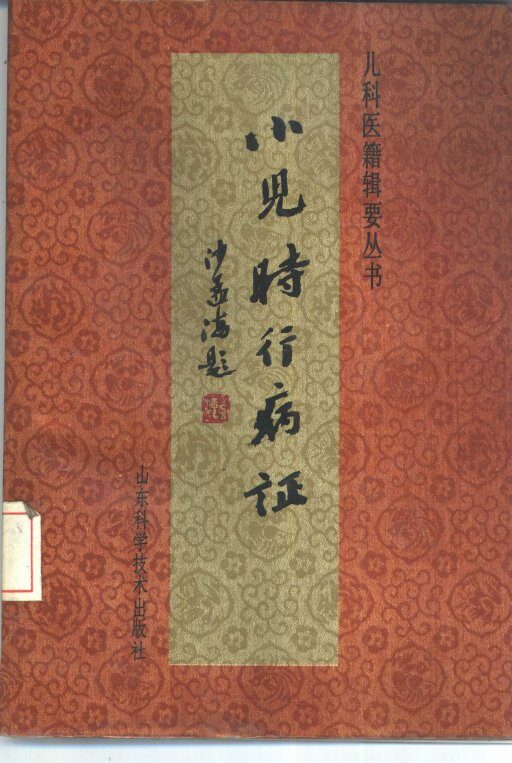 儿科医籍辑要丛书
小児時行病证
沙孟海题
山东科学技术出版社